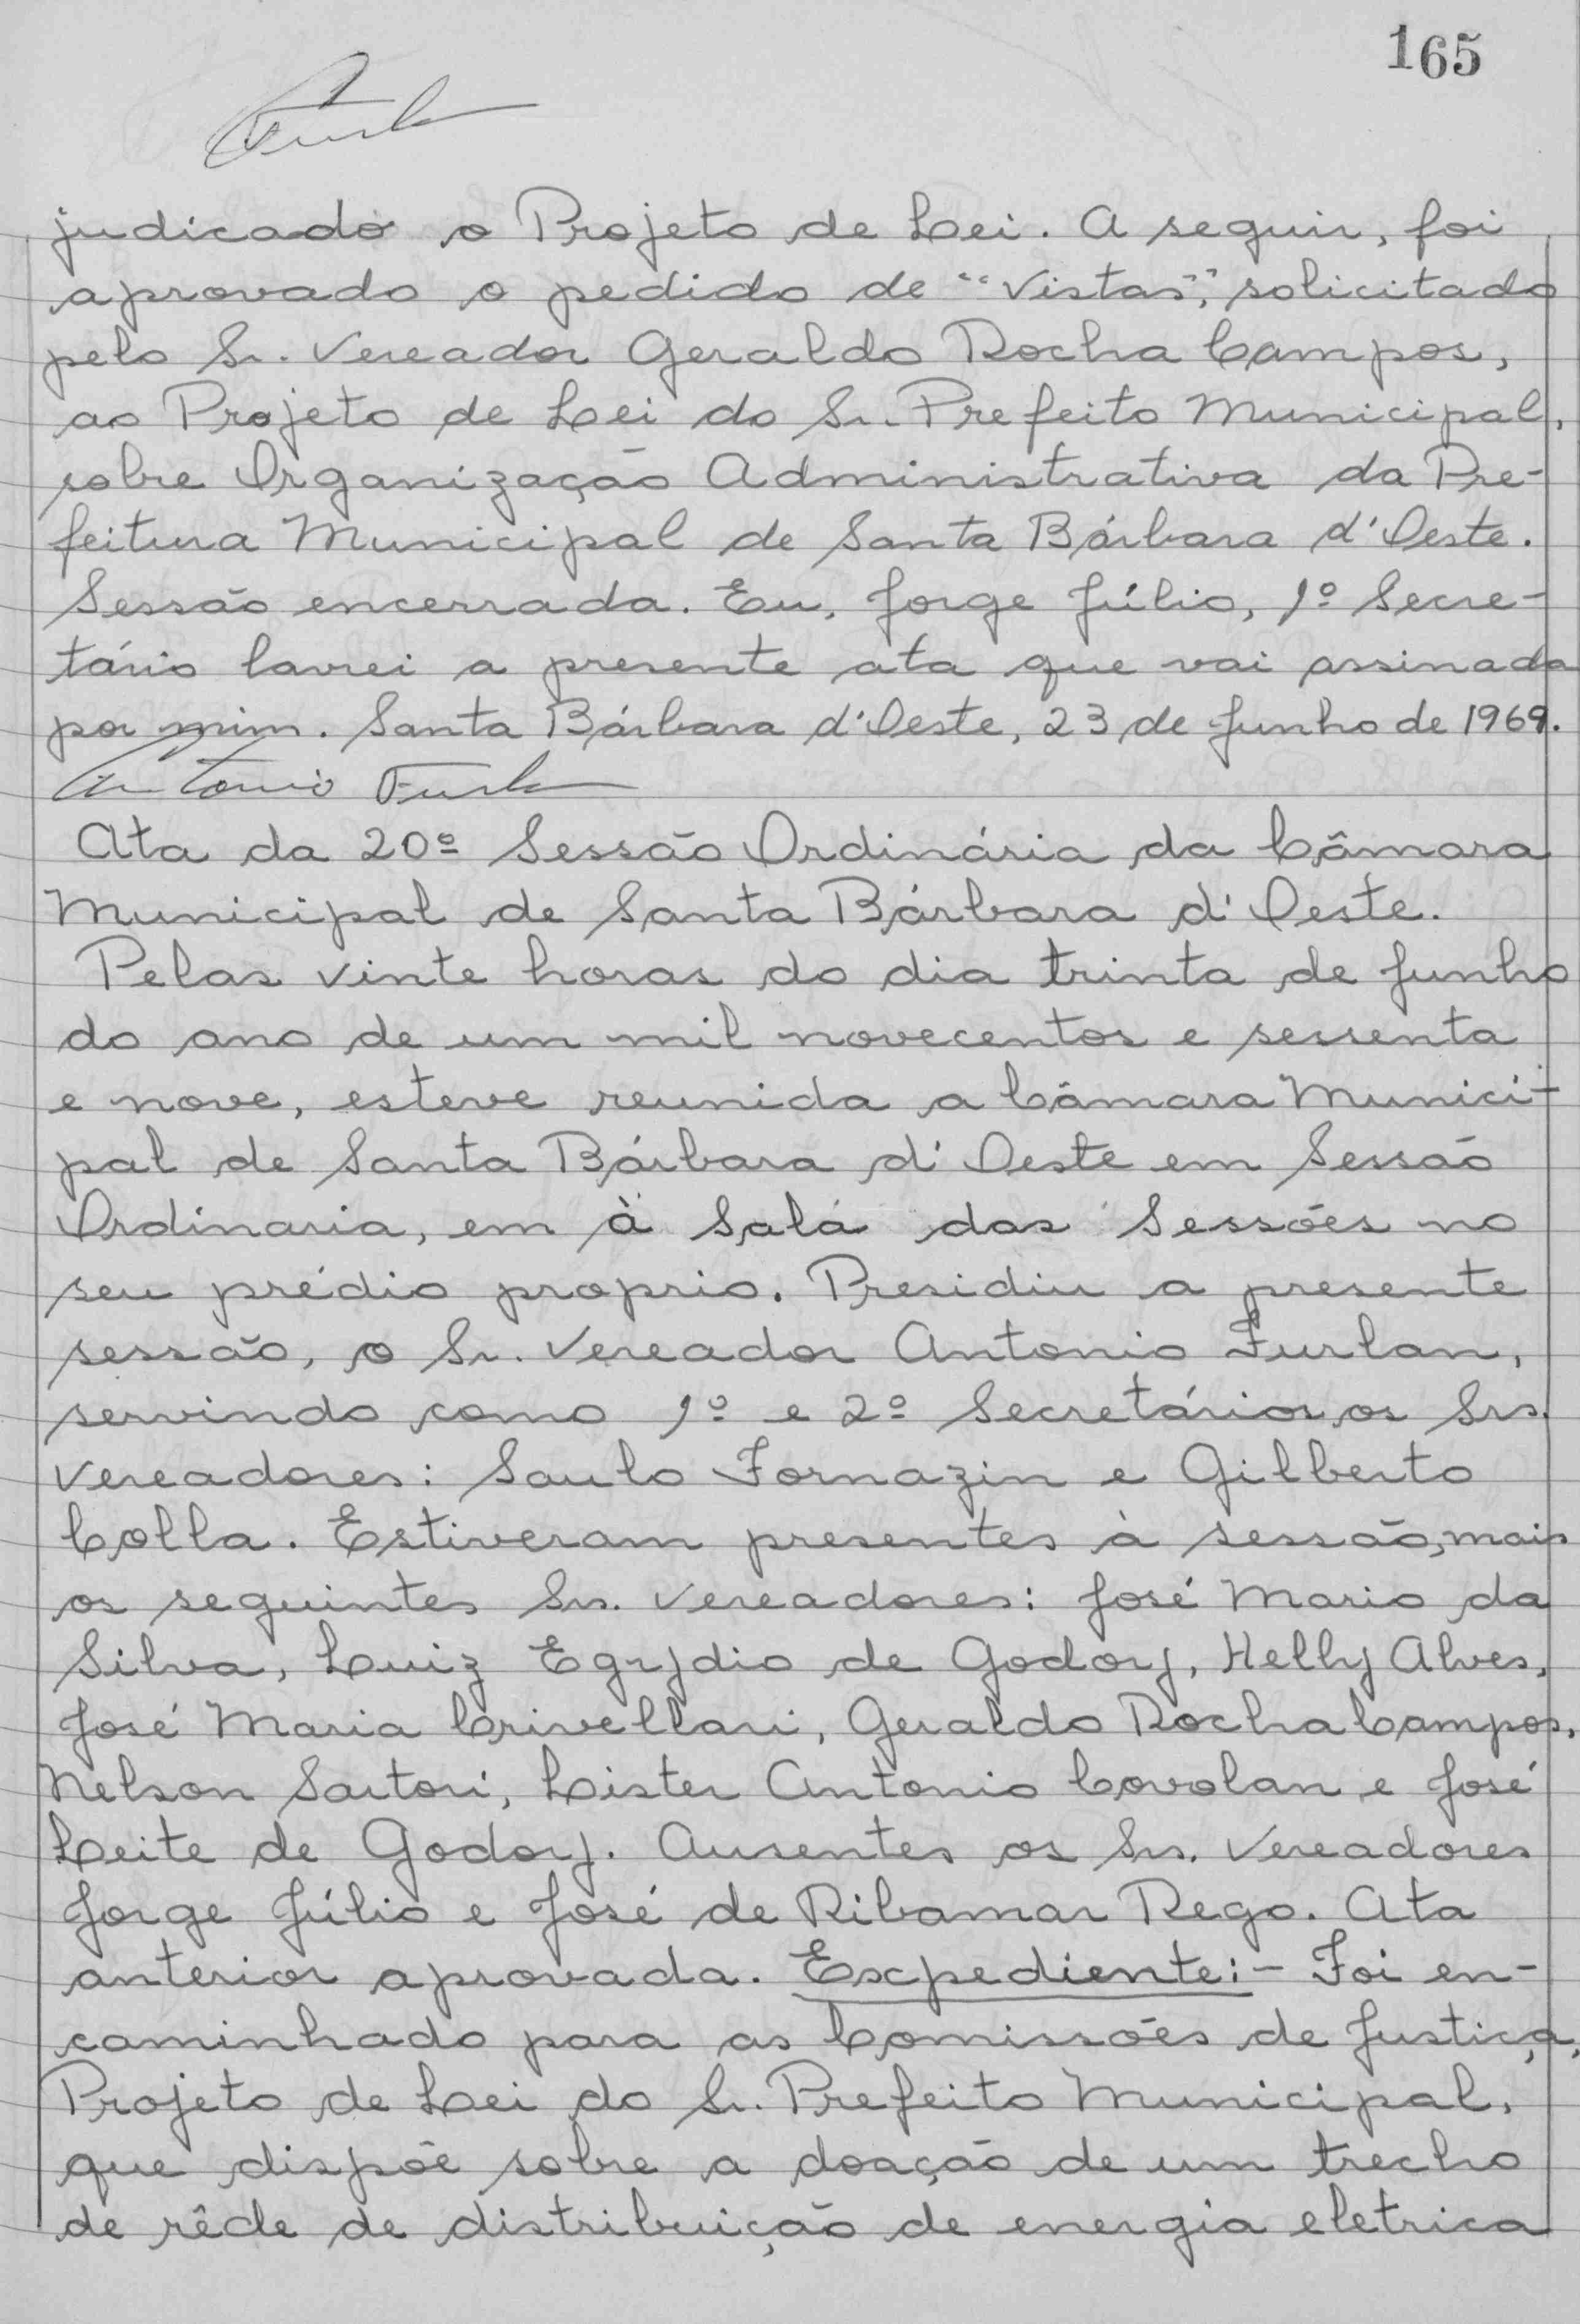 165
judicado o Projeto de Lei. A seguir, foi
aprovado o pedido de "Vistas", solicitado
pelo Sr. Vereador Geraldo Rocha Campos,
ao Projeto de Lei do Sr. Prefeito Municipal,
sobre Organização Administrativa da Pre-
feitura Municipal de Santa Bárbara d'Oeste.
Sessão encerrada. Eu, Jorge Júlio, 1º Secre-
tário lavrei a presente ata que vai assinada
por mim. Santa Bárbara d'Oeste, 23 de Junho de 1969.
Antonio Furlan
Ata da 20º Sessão Ordinária da Câmara
Municipal de Santa Bárbara d'Oeste.
Pelas vinte horas do dia trinta de Junho
do ano de um mil novecentos e sessenta
e nove, esteve reunida a Câmara Munici-
pal de Santa Bárbara d'Oeste em Sessão
Ordinaria, em à Sala das Sessões no
seu prédio proprio. Presidiu a presente
sessão, o Sr. Vereador Antonio Furlan,
servindo como 1º e 2º Secretários os Srs.
Vereadores: Saulo Fornazin e Gilberto
Colla. Estiveram presentes à sessão, mais
os seguintes Srs. Vereadores: José Mario da
Silva, Luiz Egydio de Godoy, Helly Alves,
José Maria Crivellari, Geraldo Rocha Campos,
Nelson Sartori, Lister Antonio Covolan e José
Leite de Godoy. Ausentes os Srs. Vereadores
Jorge Júlio e José de Ribamar Rego. Ata
anterior aprovada. Expediente:- Foi en-
caminhado para as Comissões de Justiça,
Projeto de Lei do Sr. Prefeito Municipal,
que dispõe sobre a doação de um trecho
de rêde de distribuição de energia eletrica